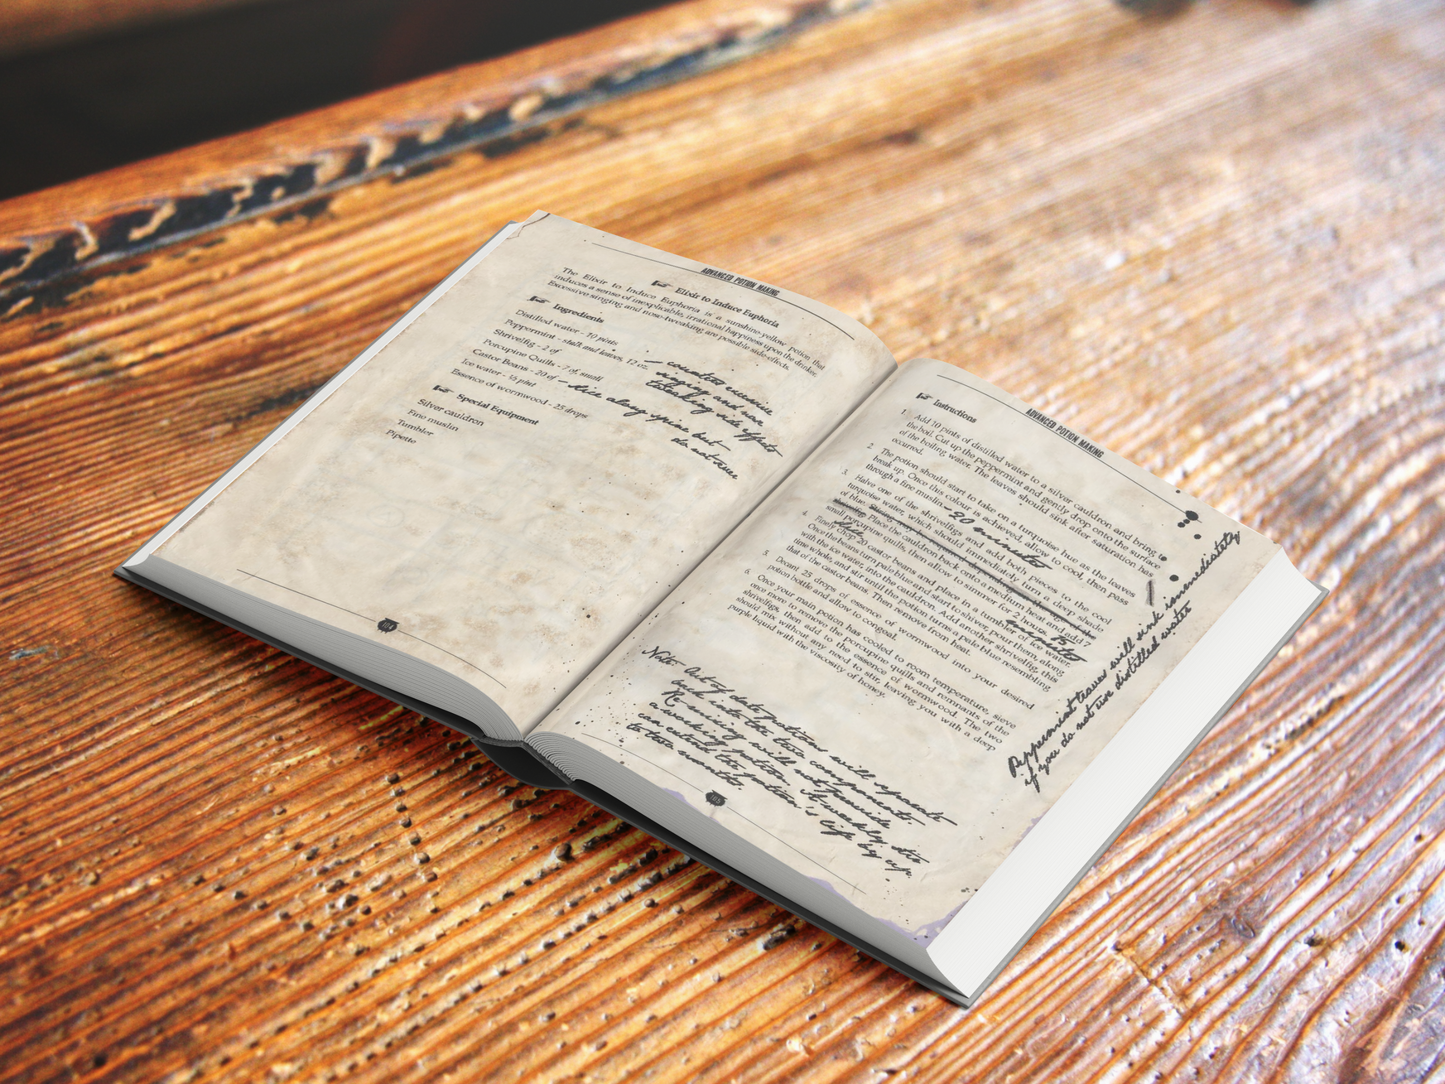 ADVANCED POTION MAKING
Elixir to Induce Euphoria
The Elixir to Induce Euphoria is a sunshine-yellow potion that
induces a sense of inexplicable, irrational happiness upon the drinker.
Excessive singing and nose-tweaking are possible side-effects.
Ingredients
Distilled water - 10 pints
Peppermint - stalk and leaves, 12 oz.
Shrivelfig - 2 of
Porcupine Quills - 7 of, small
Castor Beans - 20 of - slice along spine but
do not
Ice water - ½ pint
Essence of wormwood - 25 drops
counters excessive
singing and nose
tweaking side effects
Special Equipment
Silver cauldron
Fine muslin
Tumbler
Pipette
ADVANCED POTION MAKING
Instructions
1. Add 10 pints of distilled water to a silver cauldron and bring
the boil. Cut up the peppermint and gently drop onto the surface
of the boiling water. The leaves should sink after saturation has
occurred.
2. The potion should start to take on a turquoise hue as the leaves
break up. Once this colour is achieved, allow to cool, then pass
through a fine muslin - 20 minutes
3. Halve one of the shrivelfigs and add both pieces to the cool
turquoise water, which should immediately turn a deep shade
of blue.
Place the cauldron back onto a medium heat and add 7
small porcupine quills, then allow to simmer for 2 hours. 15
minutes
4. Finely chop 20 castor beans and place in a tumbler of ice water.
slice
Once the beans turn pale blue and start to shiver, pour them, along
with the ice water, into the cauldron. Add another shrivelfig, this
time whole, and stir until the potion turns a pale blue resembling
that of the castor beans. Then remove from heat.
5. Decant 25 drops of essence of wormwood into your desired
potion bottle and allow to congeal.
6. Once your main potion has cooled to room temperature, sieve
once more to remove the porcupine quills and remnants of the
shrivelfigs, then add to the essence of wormwood. The two
should mix without any need to stir, leaving you with a deep
purple liquid with the viscosity of honey.
Peppermint leaves will sink immediately
if you do not use distilled water
Note- Out of date potions will separate
back into the two components.
Re-mixing will not provide
a working potion. A weekly stir
can extend the potion's life by up
to two months.